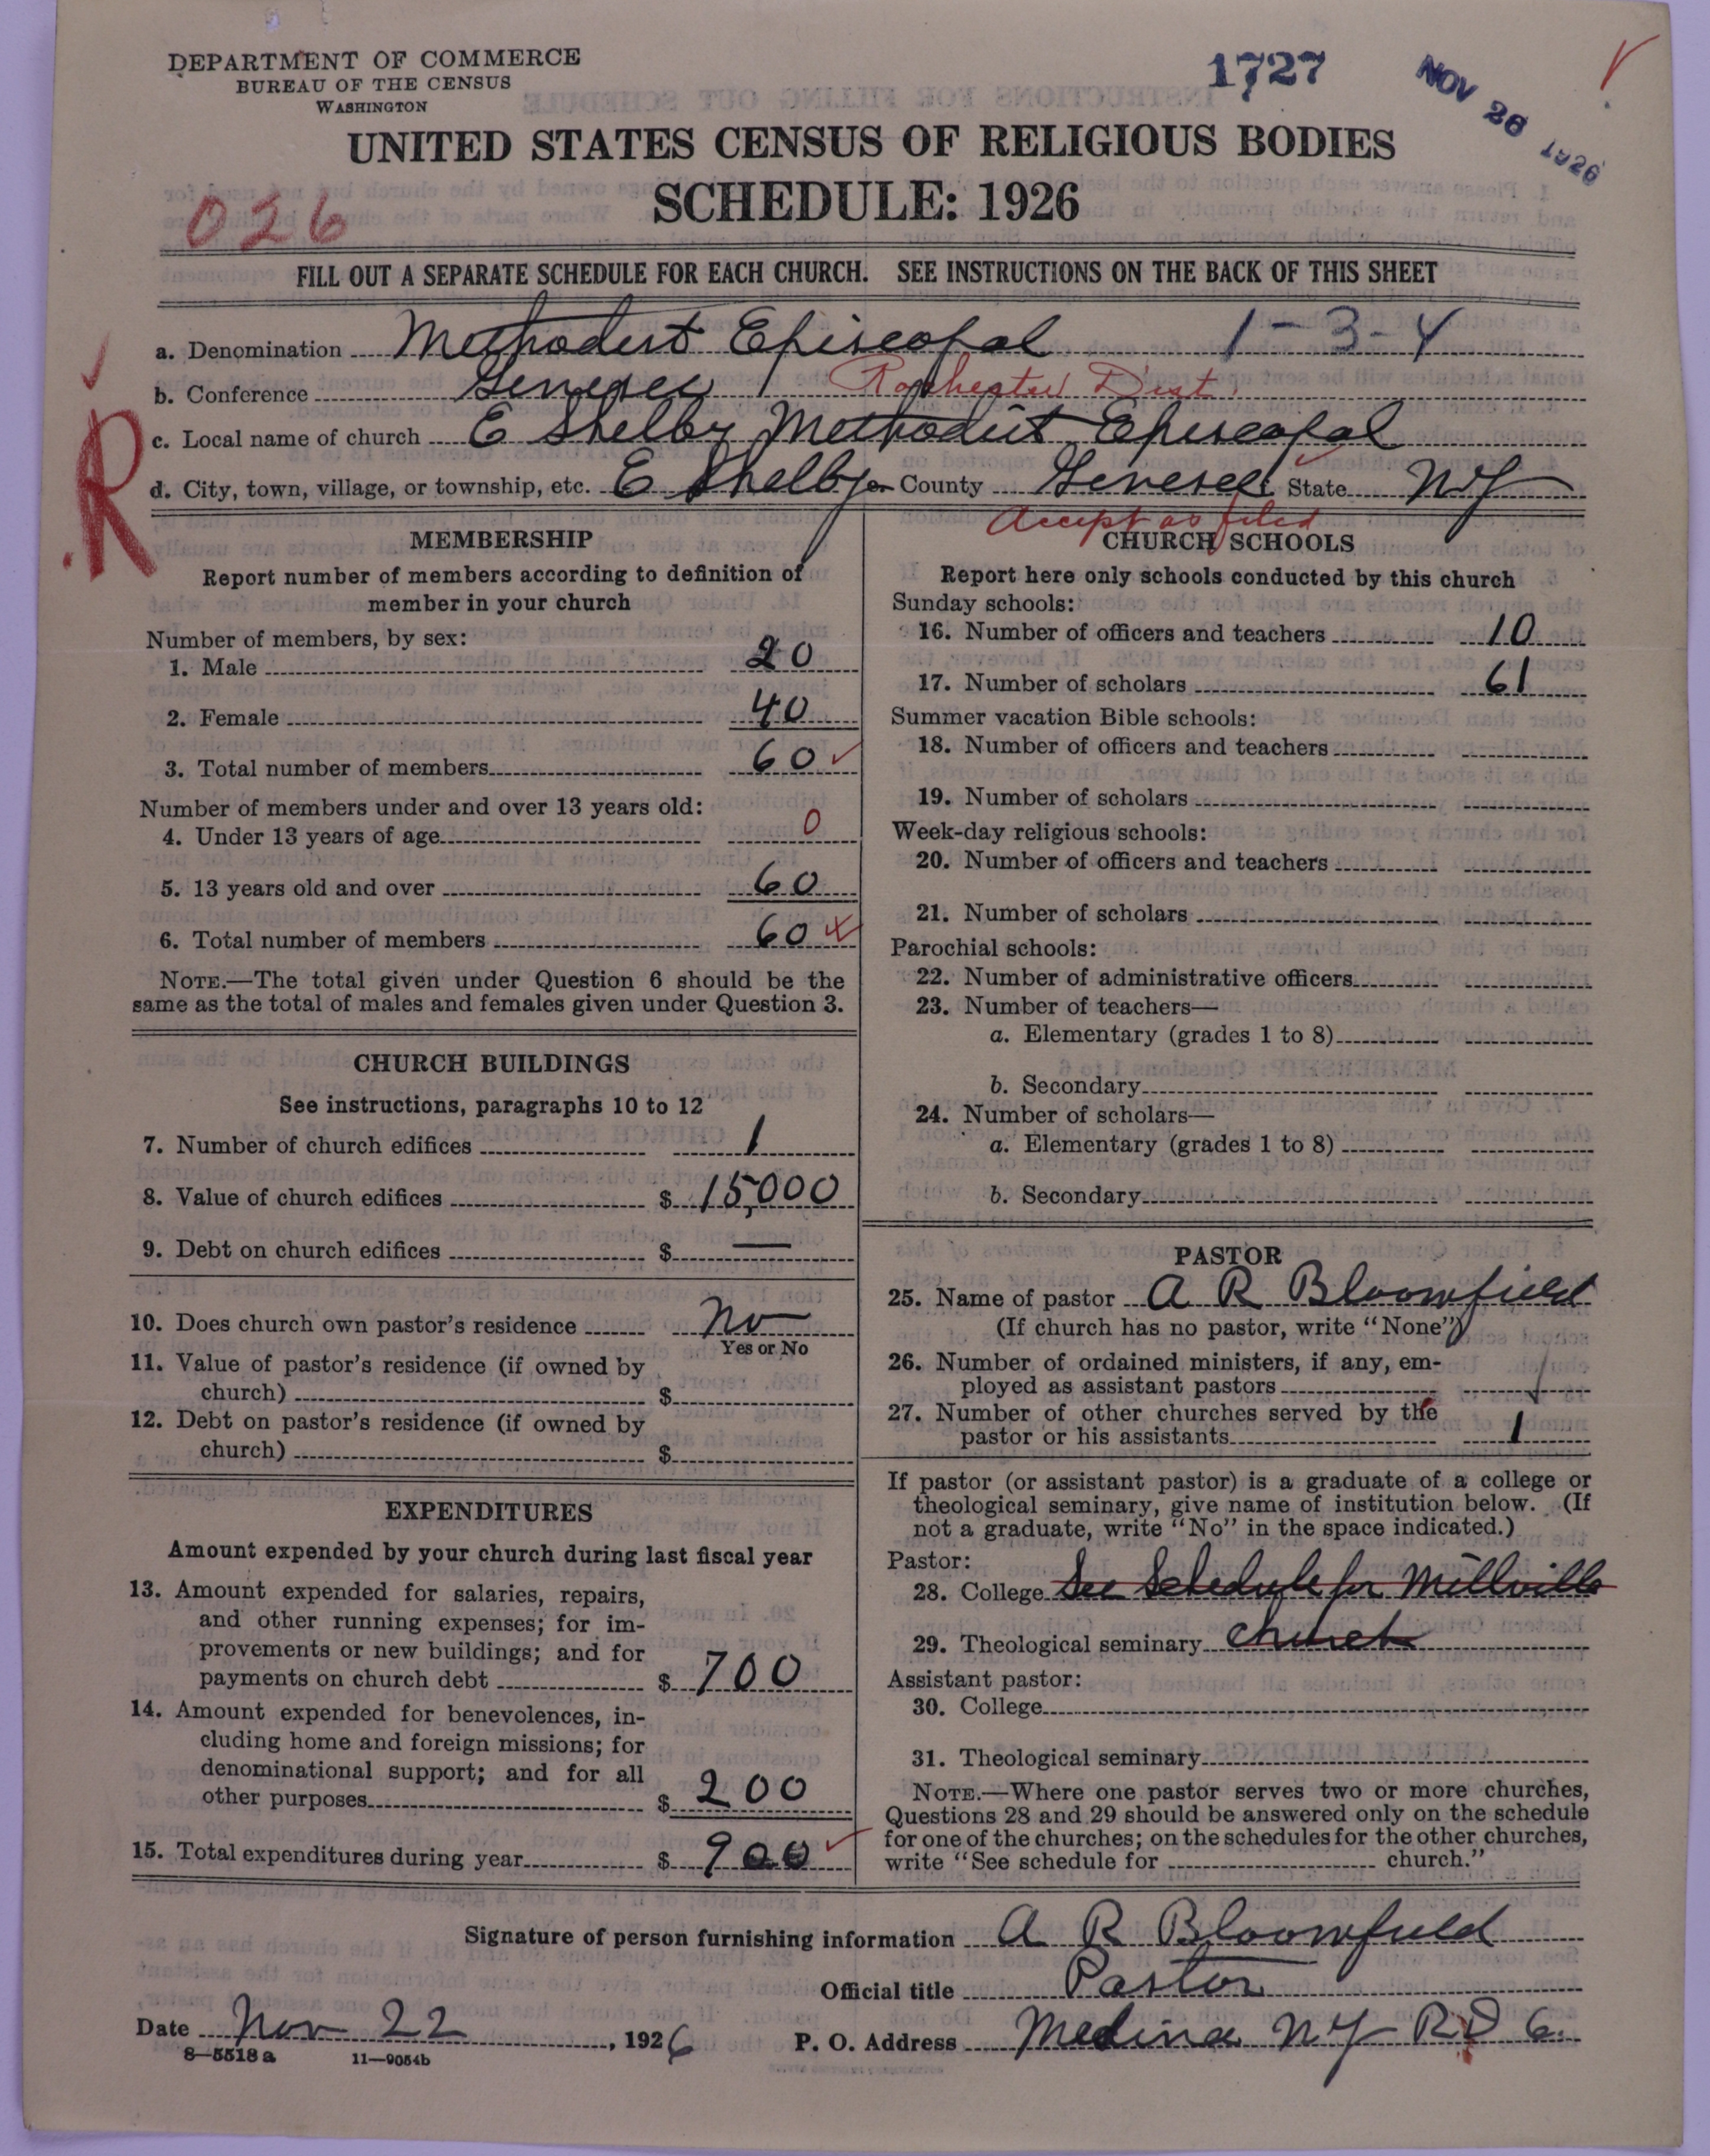 DEPARTMENT OF COMMERCE
BUREAU OF THE CENSUS
WASHINGTON
1727
NOV 26 1926
UNITED STATES CENSUS OF RELIGIOUS BODIES
SCHEDULE: 1926
026
FILL OUT A SEPARATE SCHEDULE FOR EACH CHURCH. SEE INSTRUCTIONS ON THE BACK OF THIS SHEET
a. Denomination Methodist Episcopal 1-3-4
b. Conference Genesee Rochester Dist.
c. Local name of church E Shelby Methodist Episcopal
d. City, town, village, or township, etc. E Shelby County Genesee State NY
R
Accept as filed
MEMBERSHIP
Report number of members according to definition of
member in your church
Number of members, by sex:
1. Male 20
2. Female 40
3. Total number of members 60
Number of members under and over 13 years old:
4. Under 13 years of age 0
5. 13 years old and over 60
6. Total number of members 60
NOTE.—The total given under Question 6 should be the
same as the total of males and females given under Question 3.
CHURCH BUILDINGS
See instructions, paragraphs 10 to 12
7. Number of church edifices 1
8. Value of church edifices $ 15,000
9. Debt on church edifices $ —
10. Does church own pastor's residence No
Yes or No
11. Value of pastor's residence (if owned by
church) $
12. Debt on pastor's residence (if owned by
church) $
EXPENDITURES
Amount expended by your church during last fiscal year
13. Amount expended for salaries, repairs,
and other running expenses; for im-
provements or new buildings; and for
payments on church debt $ 700
14. Amount expended for benevolences, in-
cluding home and foreign missions; for
denominational support; and for all
other purposes $ 200
15. Total expenditures during year $ 900
CHURCH SCHOOLS
Report here only schools conducted by this church
Sunday schools:
16. Number of officers and teachers 10
17. Number of scholars 61
Summer vacation Bible schools:
18. Number of officers and teachers
19. Number of scholars
Week-day religious schools:
20. Number of officers and teachers
21. Number of scholars
Parochial schools:
22. Number of administrative officers
23. Number of teachers—
a. Elementary (grades 1 to 8)
b. Secondary
24. Number of scholars—
a. Elementary (grades 1 to 8)
b. Secondary
PASTOR
25. Name of pastor A R Bloomfield
(If church has no pastor, write "None")
26. Number of ordained ministers, if any, em-
ployed as assistant pastors
27. Number of other churches served by the
pastor or his assistants 1
If pastor (or assistant pastor) is a graduate of a college or
theological seminary, give name of institution below. (If
not a graduate, write "No" in the space indicated.)
Pastor:
28. College See Schedule for Millville
29. Theological seminary church
Assistant pastor:
30. College
31. Theological seminary
NOTE.—Where one pastor serves two or more churches,
Questions 28 and 29 should be answered only on the schedule
for one of the churches; on the schedules for the other churches,
write "See schedule for church."
Signature of person furnishing information A R Bloomfield
Official title Pastor
Date Nov 22, 1926 P. O. Address Medina NY RD 6.
8—5518 a 11—9054b